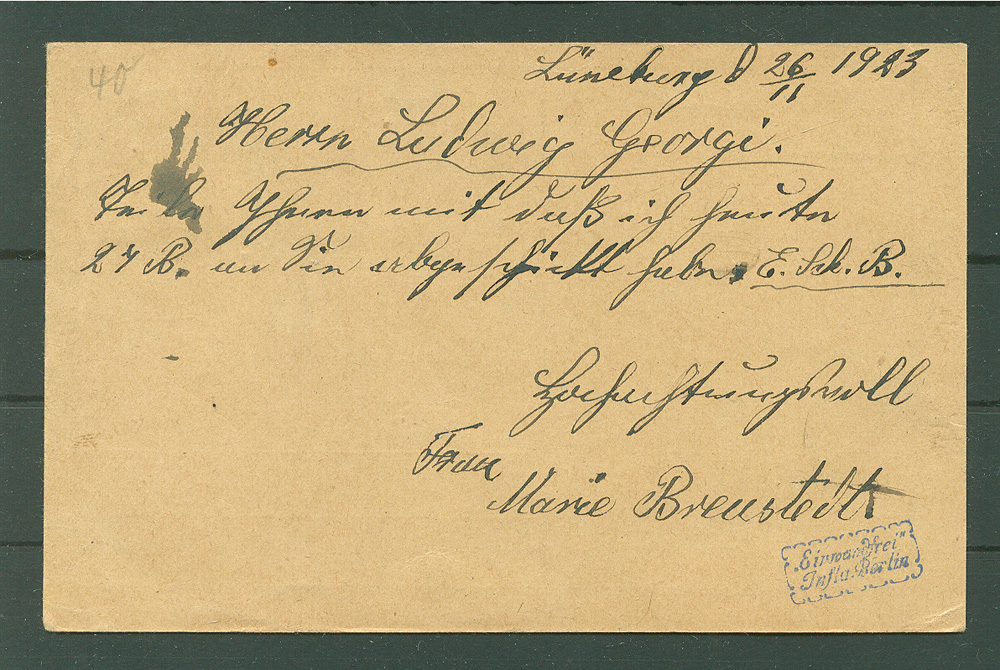 40
Lüneburg d 26/11 1923
Herrn Ludwig Georgi.
Teile Ihnen mit daß ich heute
27 B. an Sie abgeschickt habe, E. Sch. B.
Hochachtungsvoll
Frau
Marie Breustedt
„Einwandfrei"
Infla Berlin